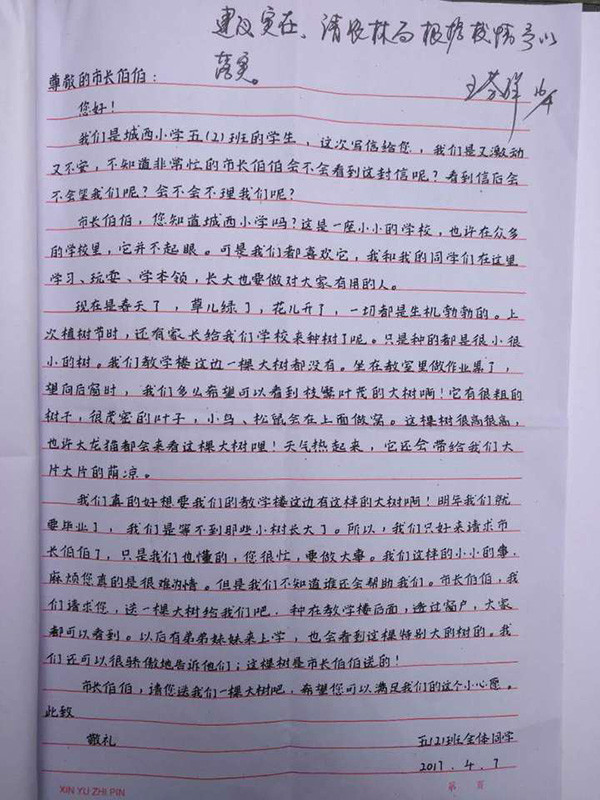 建议实在，请农林局根据校情予以
落实。
尊敬的市长伯伯：
您好！
我们是城西小学五(2)班的学生，这次写信给您，我们是又激动
又不安，不知道非常忙的市长伯伯会不会看到这封信呢？看到信后会
不会笑我们呢？会不会不理我们呢？
市长伯伯，您知道城西小学吗？这是一座小小的学校，也许在众多
的学校里，它并不起眼。可是我们都喜欢它，我和我的同学们在这里
学习、玩耍、学本领，长大也要做对大家有用的人。
现在是春天了，草儿绿了，花儿开了，一切都是生机勃勃的。上
次植树节时，还有家长给我们学校来种树了呢。只是种的都是很小很
小的树。我们教学楼这边一棵大树都没有。坐在教室里做作业累了，
望向后窗时，我们多么希望可以看到枝繁叶茂的大树啊！它有很粗的
树干，很茂密的叶子，小鸟、松鼠会在上面做窝。这棵树很高很高，
也许大龙猫都会来看这棵大树哩！天气热起来，它还会带给我们大
片大片的荫凉。
我们真的好想要我们的教学楼这边有这样的大树啊！明年我们就
要毕业了，我们是等不到那些小树长大了。所以，我们只好来请求市
长伯伯了，只是我们也懂的，您很忙，要做大事。我们这样的小小的事，
麻烦您真的是很难为情。但是我们不知道谁还会帮助我们。市长伯伯，我
们请求您，送一棵大树给我们吧，种在教学楼后面，透过窗户，大家
都可以看到。以后有弟弟妹妹来上学，也会看到这棵特别大的树的。我
们还可以很骄傲地告诉他们：这棵树是市长伯伯送的！
市长伯伯，请您送我们一棵大树吧，希望您可以满足我们的这个小心愿。
此致
敬礼
五(2)班全体同学
2017.4.7
XIN YU ZHI PIN
第 页